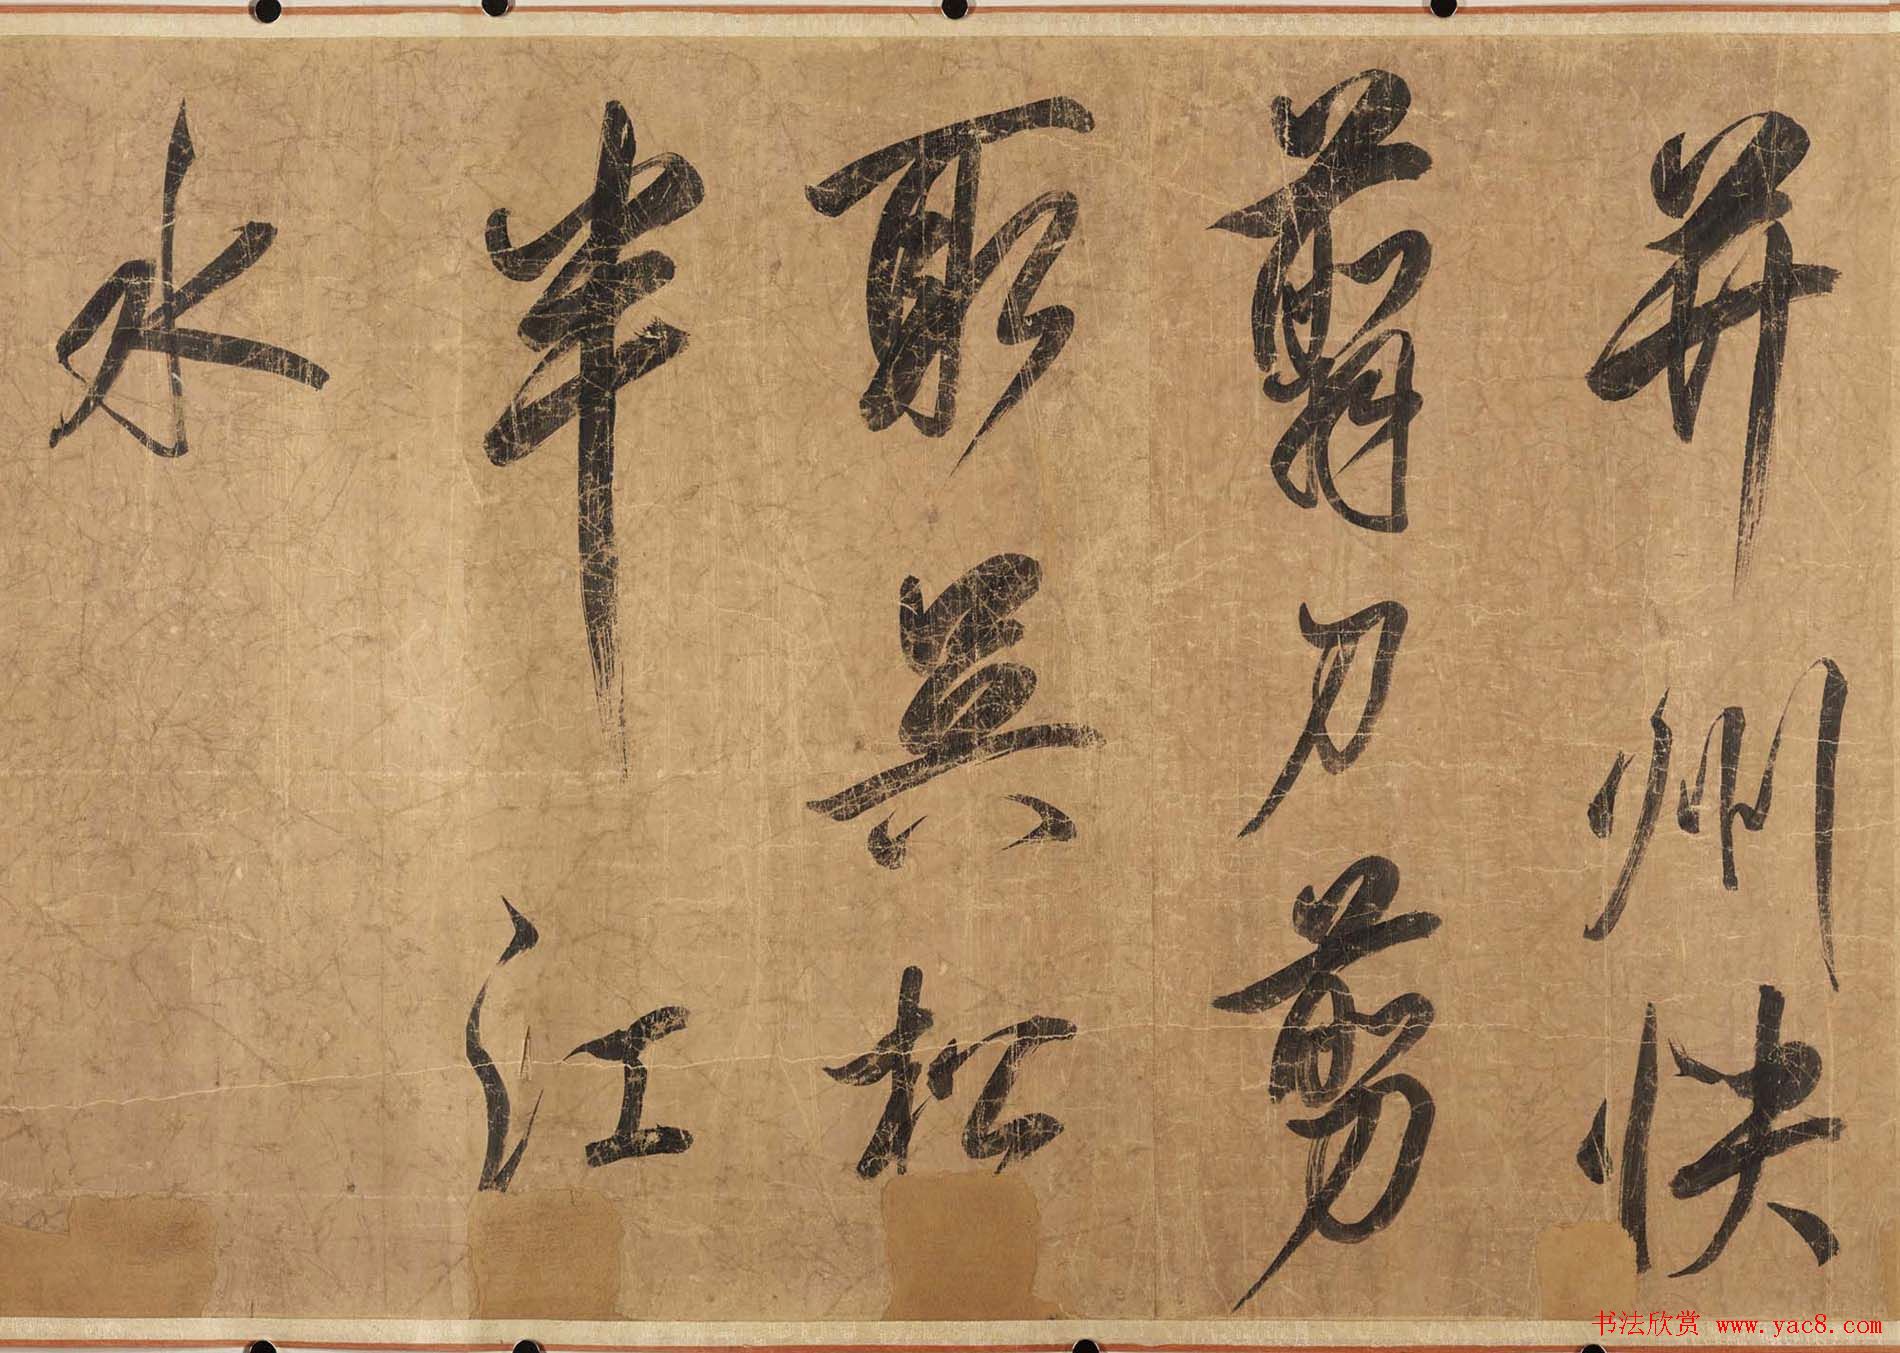 并州快
翦刀剪
取吴松
半江
水
书法欣赏 www.yac8.com